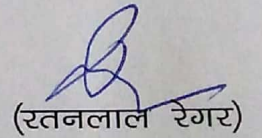 (रतनलाल रेगर)